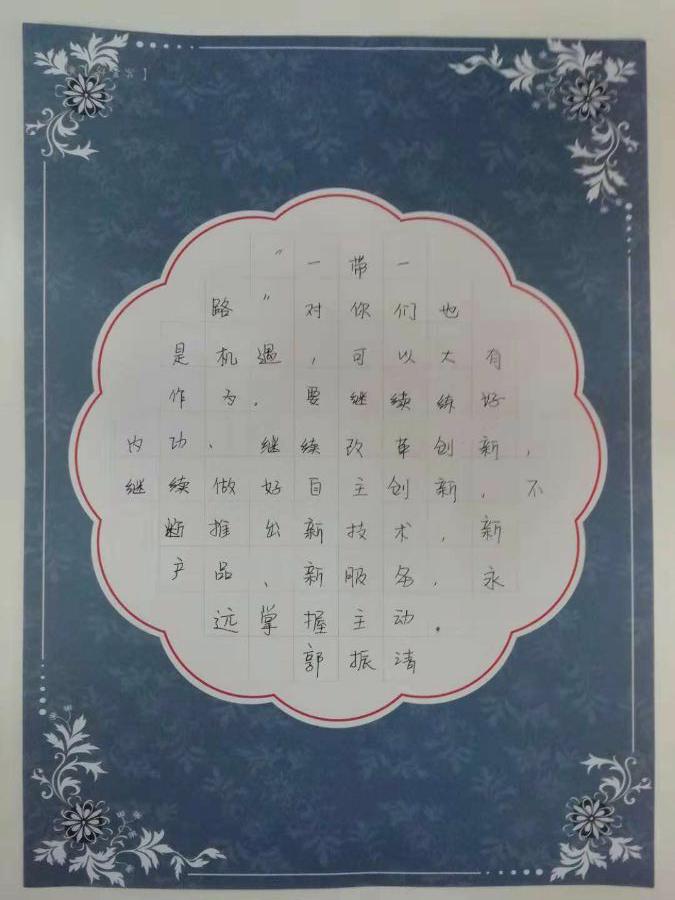 “一带一
路”对你们也
是机遇，可以大有
作为。要继续练好
内功、继续改革创新，
继续做好自主创新，不
断推出新技术，新
产品、新服务，永
远掌握主动。
郭振清